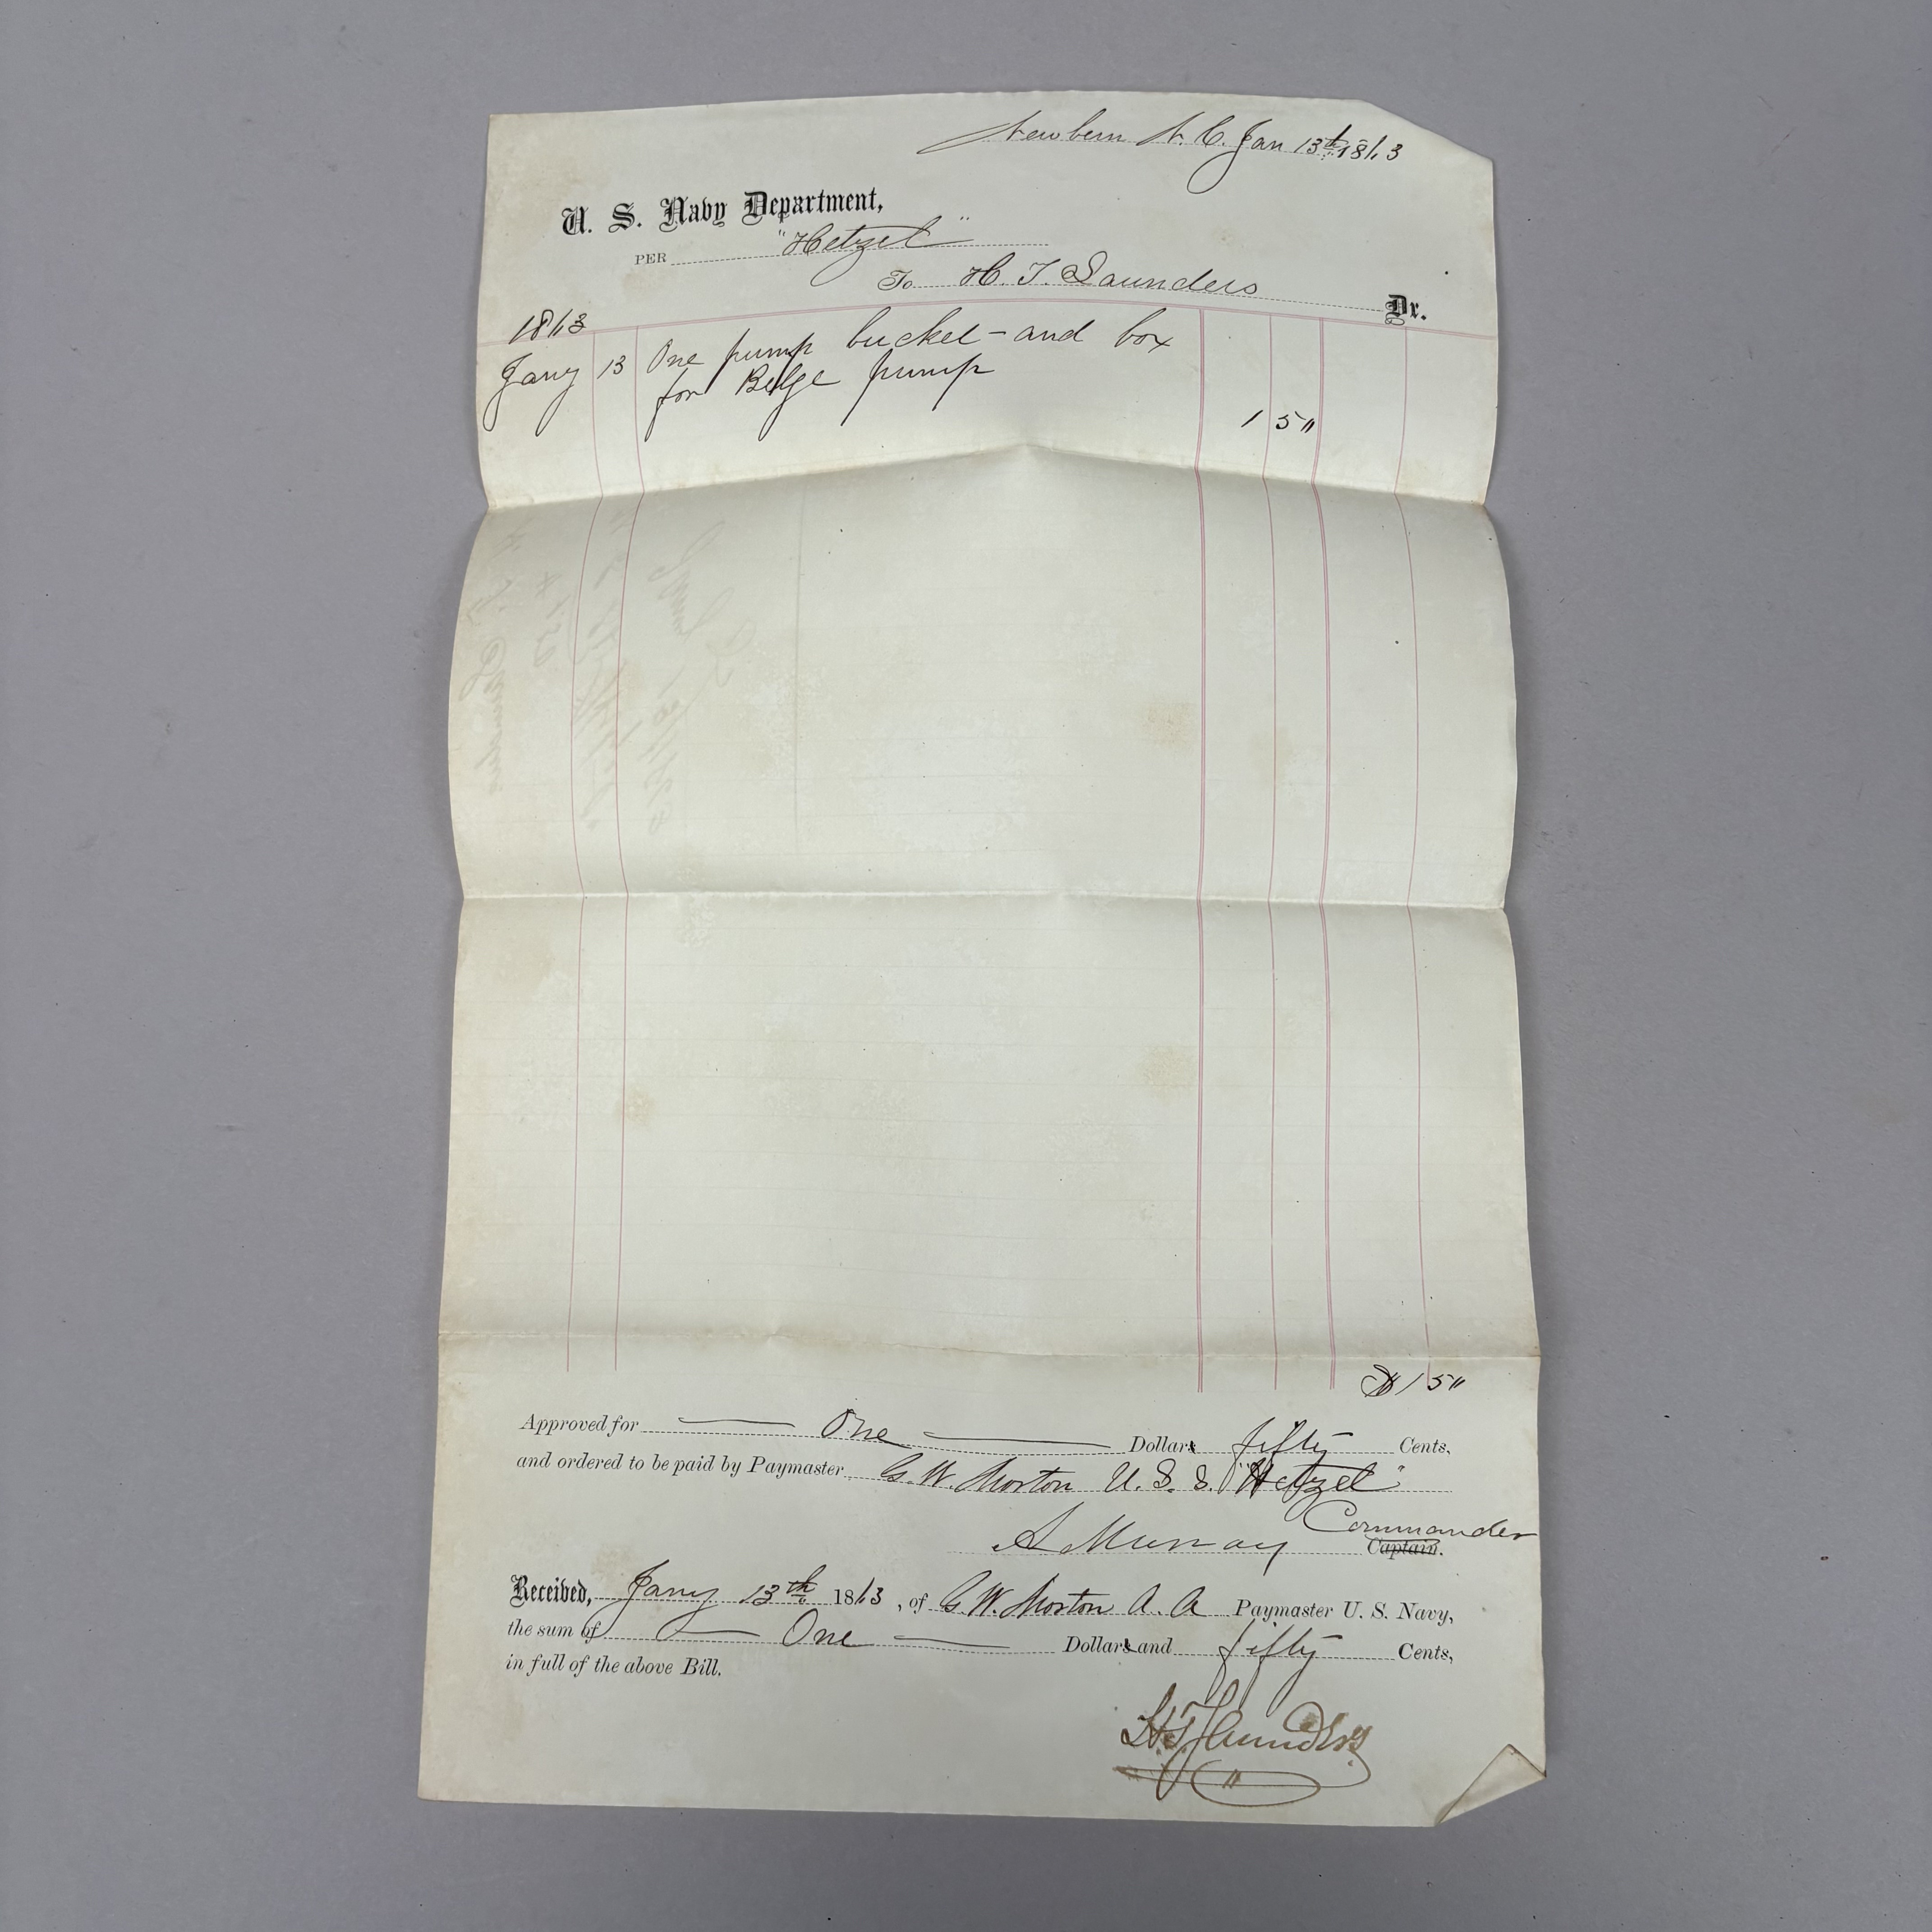 Newbern N. C. Jan 13th 1863
U. S. Navy Department,
PER "Hetzel"
To H. T. Saunders Dr.
1863
Jany 13 One pump bucket - and box
for Bilge pump
1 5"
$ 1 5"
Approved for One Dollars fifty Cents,
and ordered to be paid by Paymaster G. W. Morton U. S. S. "Hetzel"
Commander
A Murray Captain.
Received, Jany 13th 1863, of G. W. Morton A. A Paymaster U. S. Navy,
the sum of One Dollars and fifty Cents,
in full of the above Bill.
H. T. Saunders